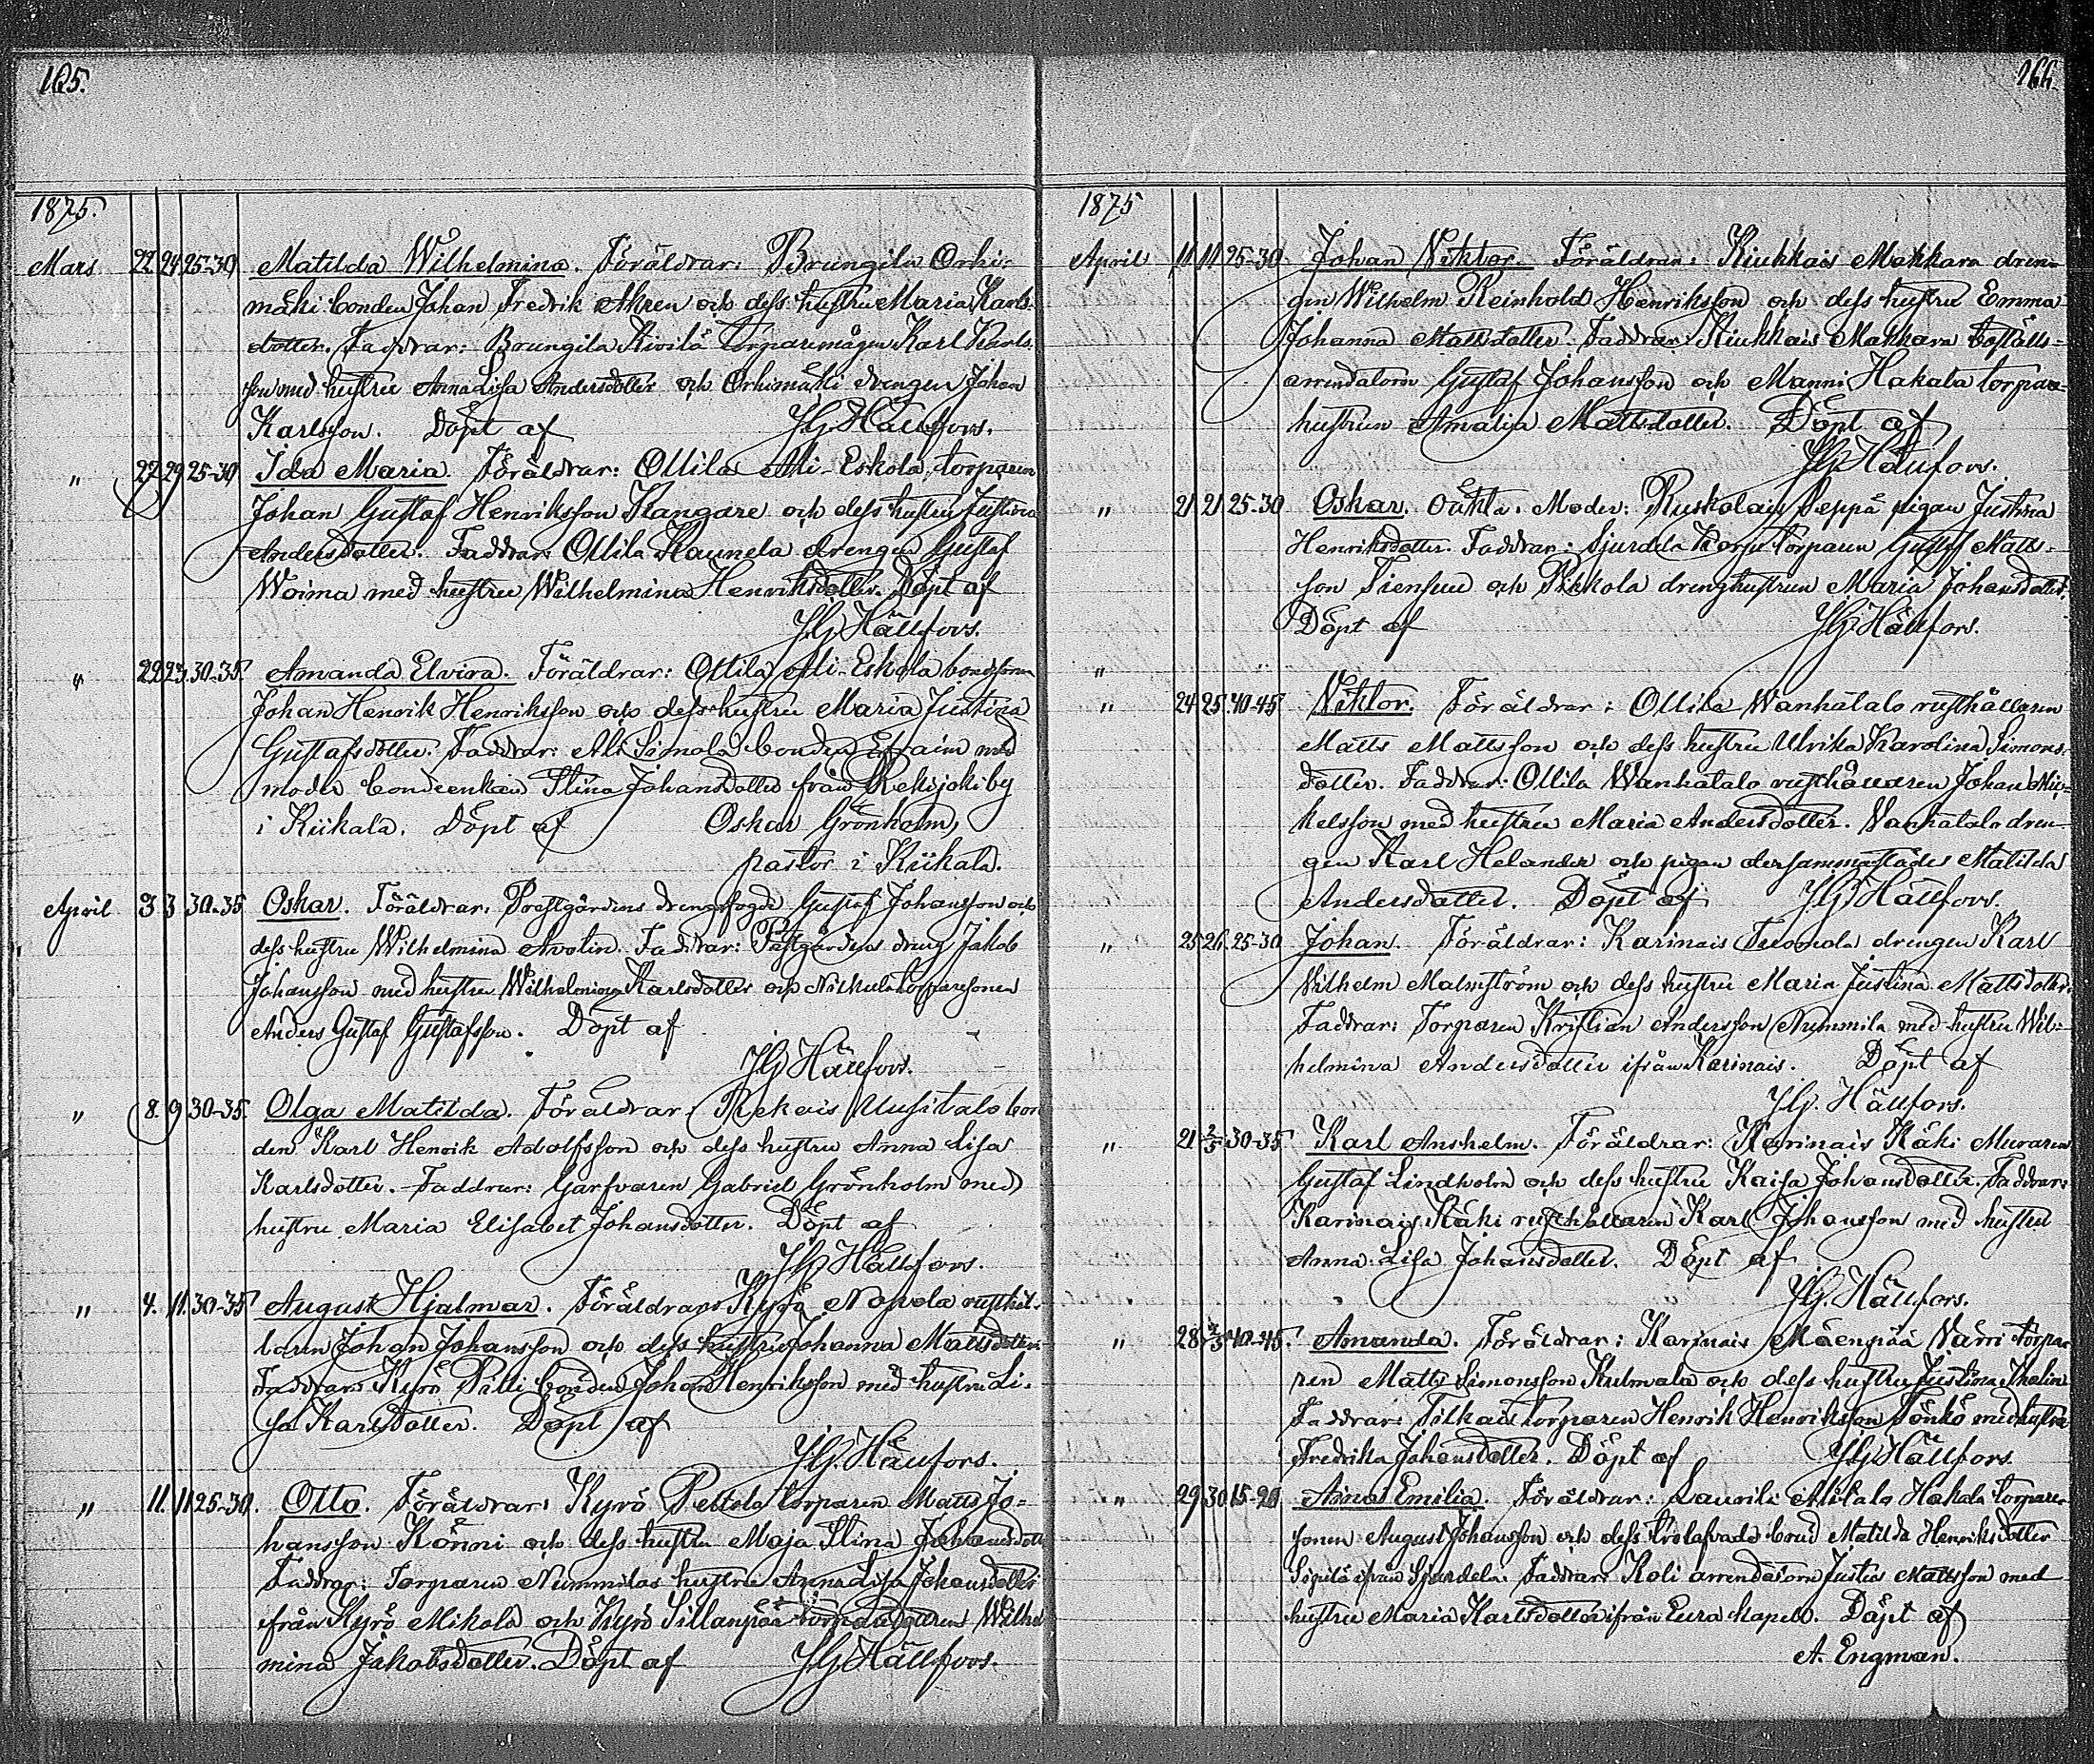 165.
1875.
Mars 22 24 25-30 Matilda Wilhelmina. Föräldrar: Brungila Orhi-
mäki bonden Johan Fredrik Ahren och dess hustru Maria Karls-
dotter. Faddrar: Brungila Kivilä torparemågen Karl Karls-
son med hustru Anna Lisa Andersdotter och Orhimäki drengen Johan
Karlsson. Döpt af J.G. Hällfors.
" 27 29 25-30 Ida Maria. Föräldrar: Ollila Ali-Eskola torparen
Johan Gustaf Henriksson Kangare och dess hustru Justina
Andersdotter. Faddrar: Ollila Kaunela drengen Gustaf
Woima med hustru Wilhelmina Henriksdotter. Döpt af
J.G. Hällfors.
" 22 23 30-35. Amanda Elvira. Föräldrar: Ollila Ali-Eskola bondsonen
Johan Henrik Henriksson och dess hustru Maria Justina
Gustafsdotter. Faddrar: Ali Simola bonden Efraim med
moder bondeenkan Stina Johansdotter från Rekijoki by
i Kiikala. Döpt af Oskar Grönholm,
pastor i Kiikala.
April 3 3 30-35 Oskar. Föräldrar: Prestgårdens drengfogde Gustaf Johansson och
dess hustru Wilhelmina Avolin. Faddrar: Prestgårdens dreng Jakob
Johansson med hustru Wilhelmina Karlsdotter och torparesonen
Anders Gustaf Gustafsson. Döpt af
J.G. Hällfors.
" 8. 9 30-35. Olga Matilda. Föräldrar: Rekois Uusitalo bon
den Karl Henrik Adolfsson och dess hustru Anna Lisa
Karlsdotter. Faddrar: Garfvaren Gabriel Grönholm med
hustru Maria Elisabet Johansdotter. Döpt af
J.G. Hällfors.
" 4. 11. 30-35 August Hjalmar. Föräldrar: Kyrö rusthål-
laren Johan Johansson och dess hustru Johanna Mattsdotter.
Faddrar: Kyrö Pilli bonden Johan Henriksson med hustru Li-
sa Karlsdotter. Döpt af
J.G. Hällfors.
" 11. 11 25-30. Otto. Föräldrar: Kyrö Peltola torparen Matts Jo-
hansson Könni och dess hustru Maja Stina Johansdott
Faddrar: Torparen Nummilas hustru Anna Lisa Johansdotter
från Kyrö Mikola och Kyrö Sillanpää Wilhel
mina Jakobsdotter. Döpt af J.G. Hällfors.
166.
1875
April 11 11 25-30 Johan Viktor. Föräldrar: Kiukkais Makkara dren-
gen Wilhelm Reinhold Henriksson och dess hustru Emma
Johanna Mattsdotter. Faddrar: Kiukkais Makkara boställs-
arrendatorn Gustaf Johansson och Manni Hakala torpare-
hustrun Amalia Mattsdotter. Döpt af
J.G. Hällfors.
" 21 21 25-30 Oskar. Oäkta. Moder: Ruskolais Seppä pigan Justina
Henriksdotter. Faddrar: Sjurdela torparen Gustaf Matts-
son Siensuu och Pikkola drenghustrun Maria Johansdotter.
Döpt af J.G. Hällfors.
"
" 24 25 40-45 Viktor. Föräldrar: Ollila Wanhatalo rusthållaren
Matts Mattsson och dess hustru Ulrika Karolina Simons-
dotter. Faddrar: Ollila Wanhatalo rusthållaren Johan Mi-
kelsson med hustru Maria Andersdotter. Vanhatalo dren-
gen Karl Helander och pigan dersammastädes Matilda
Andersdotter. Döpt af J.G. Hällfors.
" 25 26 25-30 Johan. Föräldrar: Karinais Tuomola drengen Karl
Vilhelm Malmström och dess hustru Maria Justina Mattsdotter.
Faddrar: Torparen Kristian Andersson Nummila med hustru Wil-
helmina Andersdotter ifrån Karinais. Döpt af
J.G. Hällfors.
" 21 2/5 30-35 Karl Anshelm. Föräldrar: Karinais Käki Muraren
Gustaf Lindholm och dess hustru Kaisa Johansdotter. Faddrar:
Karinais Käki rusthållaren Karl Johansson med hustru
Anna Lisa Johansdotter. Döpt af
J.G. Hällfors.
" 28 2/5 40-45. Amanda. Föräldrar: Karinais Mäenpää Värri torpa-
ren Matts Simonsson Kulmala och dess hustru Justina Thelin
Faddrar: torparen Henrik Henriksson Tönkö med hustru
Fredrika Johansdotter. Döpt af J.G. Hällfors.
" 29 30 15-20 Aina Emilia. Föräldrar: Laurila Alitalo Hakala torpare-
sonen August Johansson och dess trolofvade brud Matilda Henriksdotter
Sipilä ifrån Sjurdela. Faddrar: Koli arrendatorn Justus Mattsson med
hustru Maria Karlsdotter ifrån Eura kapell. Döpt af
A. Engman.